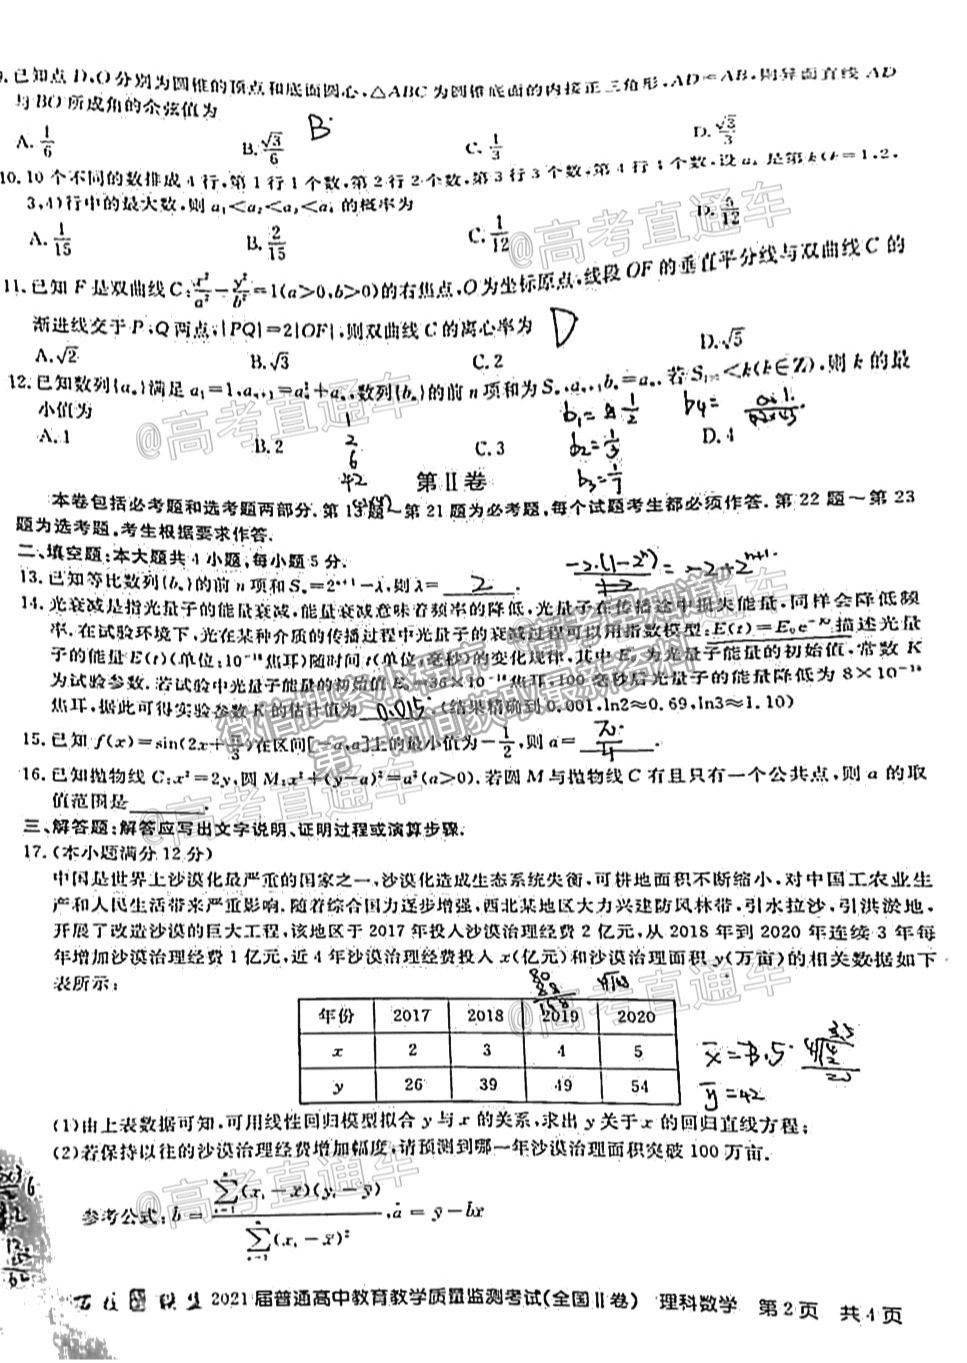 9.已知点 D,O 分别为圆锥的顶点和底面圆心,△ABC 为圆锥底面的内接正三角形,AD=AB,则异面直线 AD
与 BO 所成角的余弦值为
B
A. 1/6 B. √3/6 C. 1/3 D. √3/3
10. 10 个不同的数排成 4 行,第 1 行 1 个数,第 2 行 2 个数,第 3 行 3 个数,第 4 行 4 个数,设 aₖ 是第 k(k=1,2,
3,4)行中的最大数,则 a₁<a₂<a₃<a₄ 的概率为
A. 1/15 B. 2/15 C. 1/12 D. 5/12
11. 已知 F 是双曲线 C: x²/a² − y²/b² =1(a>0,b>0)的右焦点,O 为坐标原点,线段 OF 的垂直平分线与双曲线 C 的
渐进线交于 P,Q 两点,|PQ|=2|OF|,则双曲线 C 的离心率为 D
A.√2 B.√3 C. 2 D.√5
12. 已知数列{aₙ}满足 a₁=1,aₙ₊₁=aₙ²+aₙ,数列{bₙ}的前 n 项和为 Sₙ,aₙ₊₁bₙ=aₙ,若 <k(k∈Z),则 k 的最
小值为
A. 1 B. 2 C. 3 D. 4
b₁= 1/2 b₄=
b₂=1/3
b₃=1/7
1
2
6
42
第Ⅱ卷
本卷包括必考题和选考题两部分.第 13 题~第 21 题为必考题,每个试题考生都必须作答.第 22 题~第 23
题为选考题,考生根据要求作答.
二、填空题:本大题共 4 小题,每小题 5 分.
13. 已知等比数列{bₙ}的前 n 项和 Sₙ=2ⁿ⁺¹−λ,则 λ= 2 .
-2·(1-2ⁿ) = -2+2ⁿ⁺¹
14. 光衰减是指光量子的能量衰减,能量衰减意味着频率的降低,光量子在传播途中损失能量,同样会降低频
率.在试验环境下,光在某种介质的传播过程中光量子的衰减过程可以用指数模型:E(t)=E₀e⁻ᴷᵗ描述光量
子的能量 E(t)(单位:10⁻¹⁹焦耳)随时间 t(单位:毫秒)的变化规律,其中 E₀ 为光量子能量的初始值,常数 K
为试验参数.若试验中光量子能量的初始值 E₀=36×10⁻¹⁹焦耳,100 毫秒后光量子的能量降低为 8×10⁻¹⁹
焦耳,据此可得实验参数 K 的估计值为 0.015 .(结果精确到 0.001,ln2≈0.69,ln3≈1.10)
15. 已知 f(x)=sin(2x+π/3)在区间[−a,a]上的最小值为−1/2,则 a= π/4 .
16. 已知抛物线 C:x²=2y,圆 M:x²+(y−a)²=a²(a>0).若圆 M 与抛物线 C 有且只有一个公共点,则 a 的取
值范围是 .
三、解答题:解答应写出文字说明、证明过程或演算步骤.
17. (本小题满分 12 分)
中国是世界上沙漠化最严重的国家之一,沙漠化造成生态系统失衡,可耕地面积不断缩小,对中国工农业生
产和人民生活带来严重影响,随着综合国力逐步增强,西北某地区大力兴建防风林带,引水拉沙,引洪淤地,
开展了改造沙漠的巨大工程,该地区于 2017 年投入沙漠治理经费 2 亿元,从 2018 年到 2020 年连续 3 年每
年增加沙漠治理经费 1 亿元,近 4 年沙漠治理经费投入 x(亿元)和沙漠治理面积 y(万亩)的相关数据如下
表所示:
年份 2017 2018 2019 2020
x 2 3 4 5
y 26 39 49 54
x̄=3.5
ȳ=42
(1)由上表数据可知,可用线性回归模型拟合 y 与 x 的关系,求出 y 关于 x 的回归直线方程;
(2)若保持以往的沙漠治理经费增加幅度,请预测到哪一年沙漠治理面积突破 100 万亩.
参考公式:b̂ = ∑ᵢ₌₁ⁿ(xᵢ−x̄)(yᵢ−ȳ) / ∑ᵢ₌₁ⁿ(xᵢ−x̄)² ,â=ȳ−b̂x̄
百校联盟 2021 届普通高中教育教学质量监测考试(全国Ⅱ卷) 理科数学 第 2 页 共 4 页
@高考直通车
@高考直通车
@高考直通车
@高考直通车
@高考直通车
@高考直通车